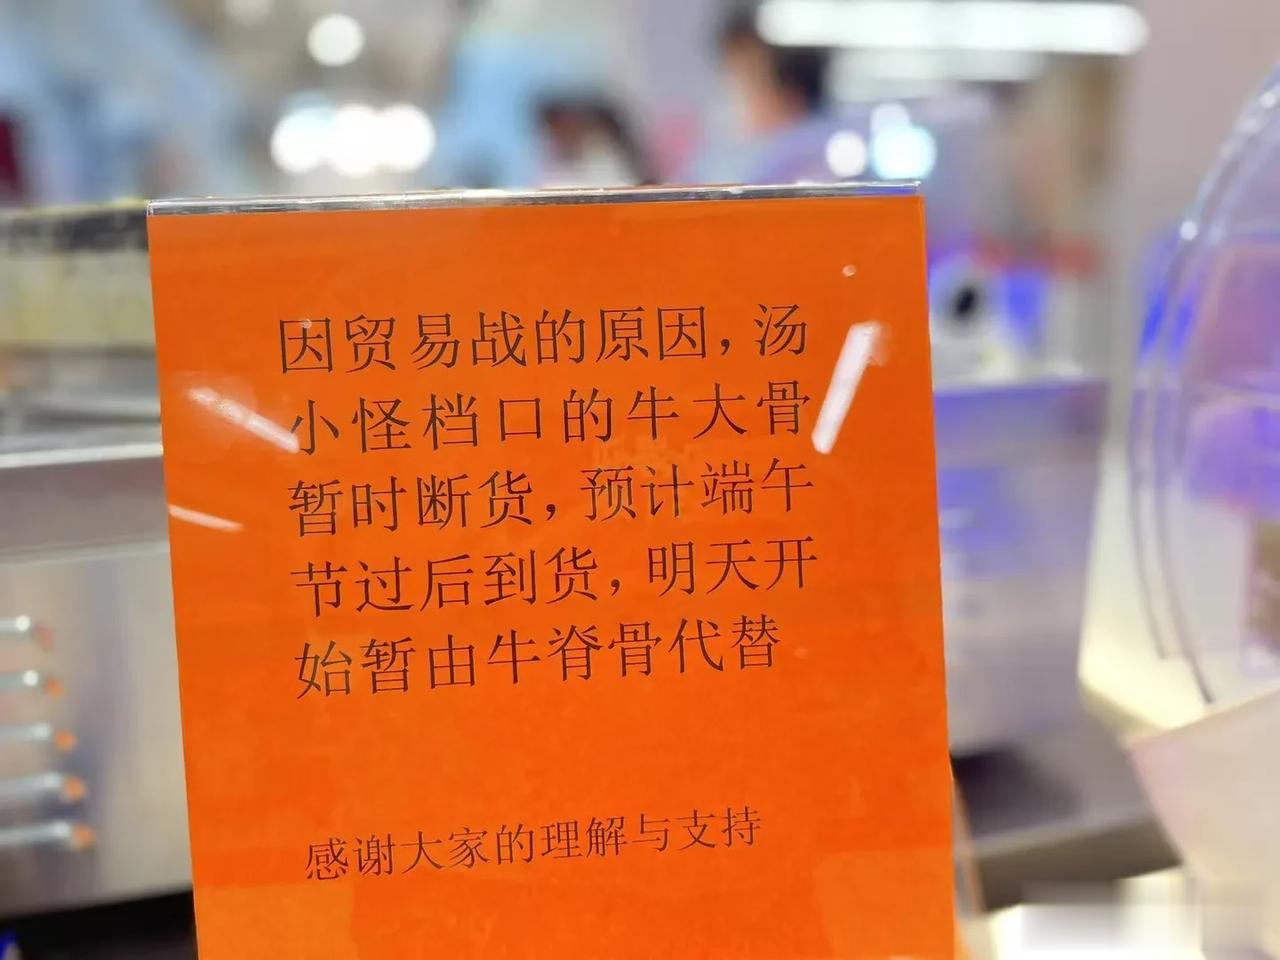 因贸易战的原因，汤
小怪档口的牛大骨
暂时断货，预计端午
节过后到货，明天开
始暂由牛脊骨代替
感谢大家的理解与支持